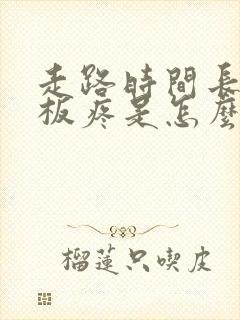 走路時間長
板疼是怎麼
榴蓮只喫皮